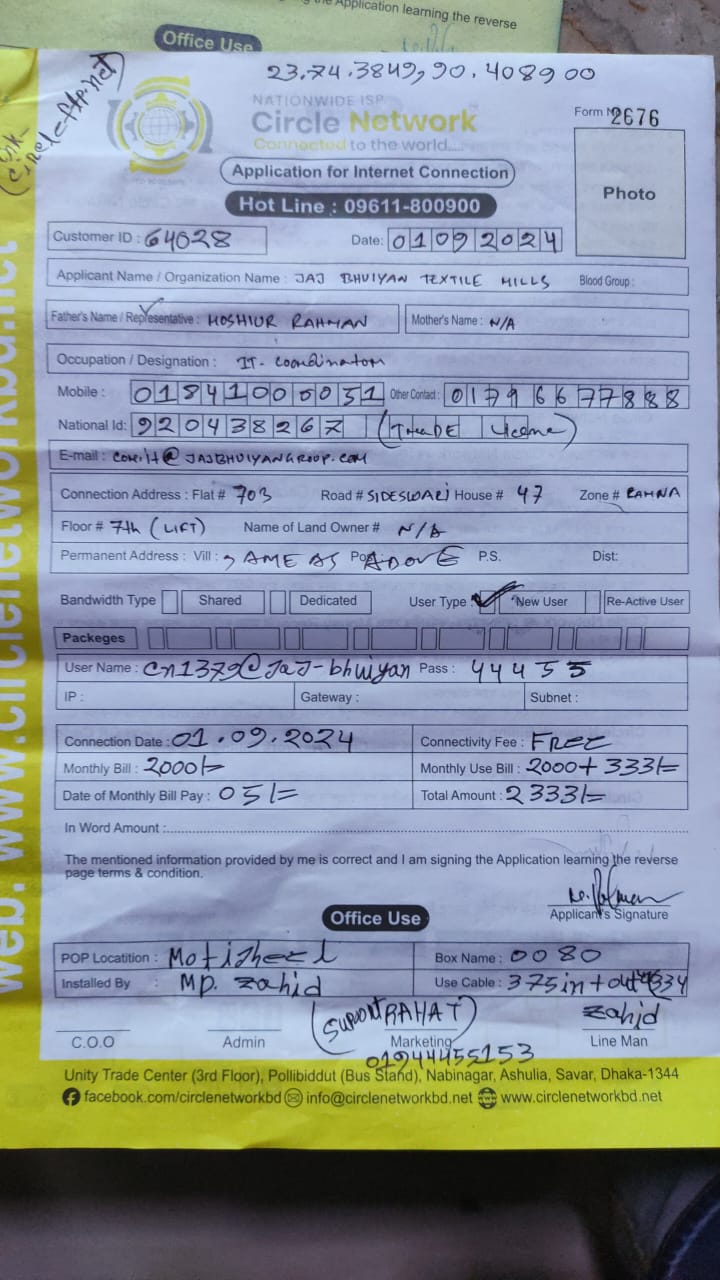 Application learning the reverse
Office Use
23.74.3849, 90.408900
NATIONWIDE ISP
Circle Network
Connected to the world....
Form N 2676
Application for Internet Connection
Photo
Hot Line : 09611-800900
Customer ID : 64028 Date: 01092024
Applicant Name / Organization Name : JAJ BHUIYAN TEXTILE MILLS Blood Group :
Father's Name / Representative : MOSHIUR RAHMAN Mother's Name : N/A
Occupation / Designation : IT- Coordinator
Mobile : 01841000051 Other Contact : 01796677888
National Id: 920438267 (TRADE License)
E-mail : @JAJBHUIYANGROUP.COM
Connection Address : Flat # 703 Road # SIDESWARI House # 47 Zone # RAMNA
Floor # 7th (LIFT) Name of Land Owner # N/A
Permanent Address : Vill : SAME AS ABOVE P.S. Dist:
Bandwidth Type Shared Dedicated User Type : New User Re-Active User
Packeges
User Name : cn1379@JaJ-bhuiyan Pass : 44455
IP : Gateway : Subnet :
Connection Date : 01.09.2024 Connectivity Fee : FREE
Monthly Bill : 2000/= Monthly Use Bill : 2000+333/=
Date of Monthly Bill Pay : 05/= Total Amount : 2333/=
In Word Amount :
The mentioned information provided by me is correct and I am signing the Application learning the reverse
page terms & condition.
Applicant's Signature
Office Use
POP Locatition : Motijheel Box Name : 0080
Installed By : MD. Zahid Use Cable : 375 in + out
(SUPPORT RAHAT) Zahid
C.O.O Admin Marketing Line Man
01944455153
Unity Trade Center (3rd Floor), Pollibiddut (Bus Stand), Nabinagar, Ashulia, Savar, Dhaka-1344
facebook.com/circlenetworkbd info@circlenetworkbd.net www.circlenetworkbd.net
web. www.circlenetworkbd.net